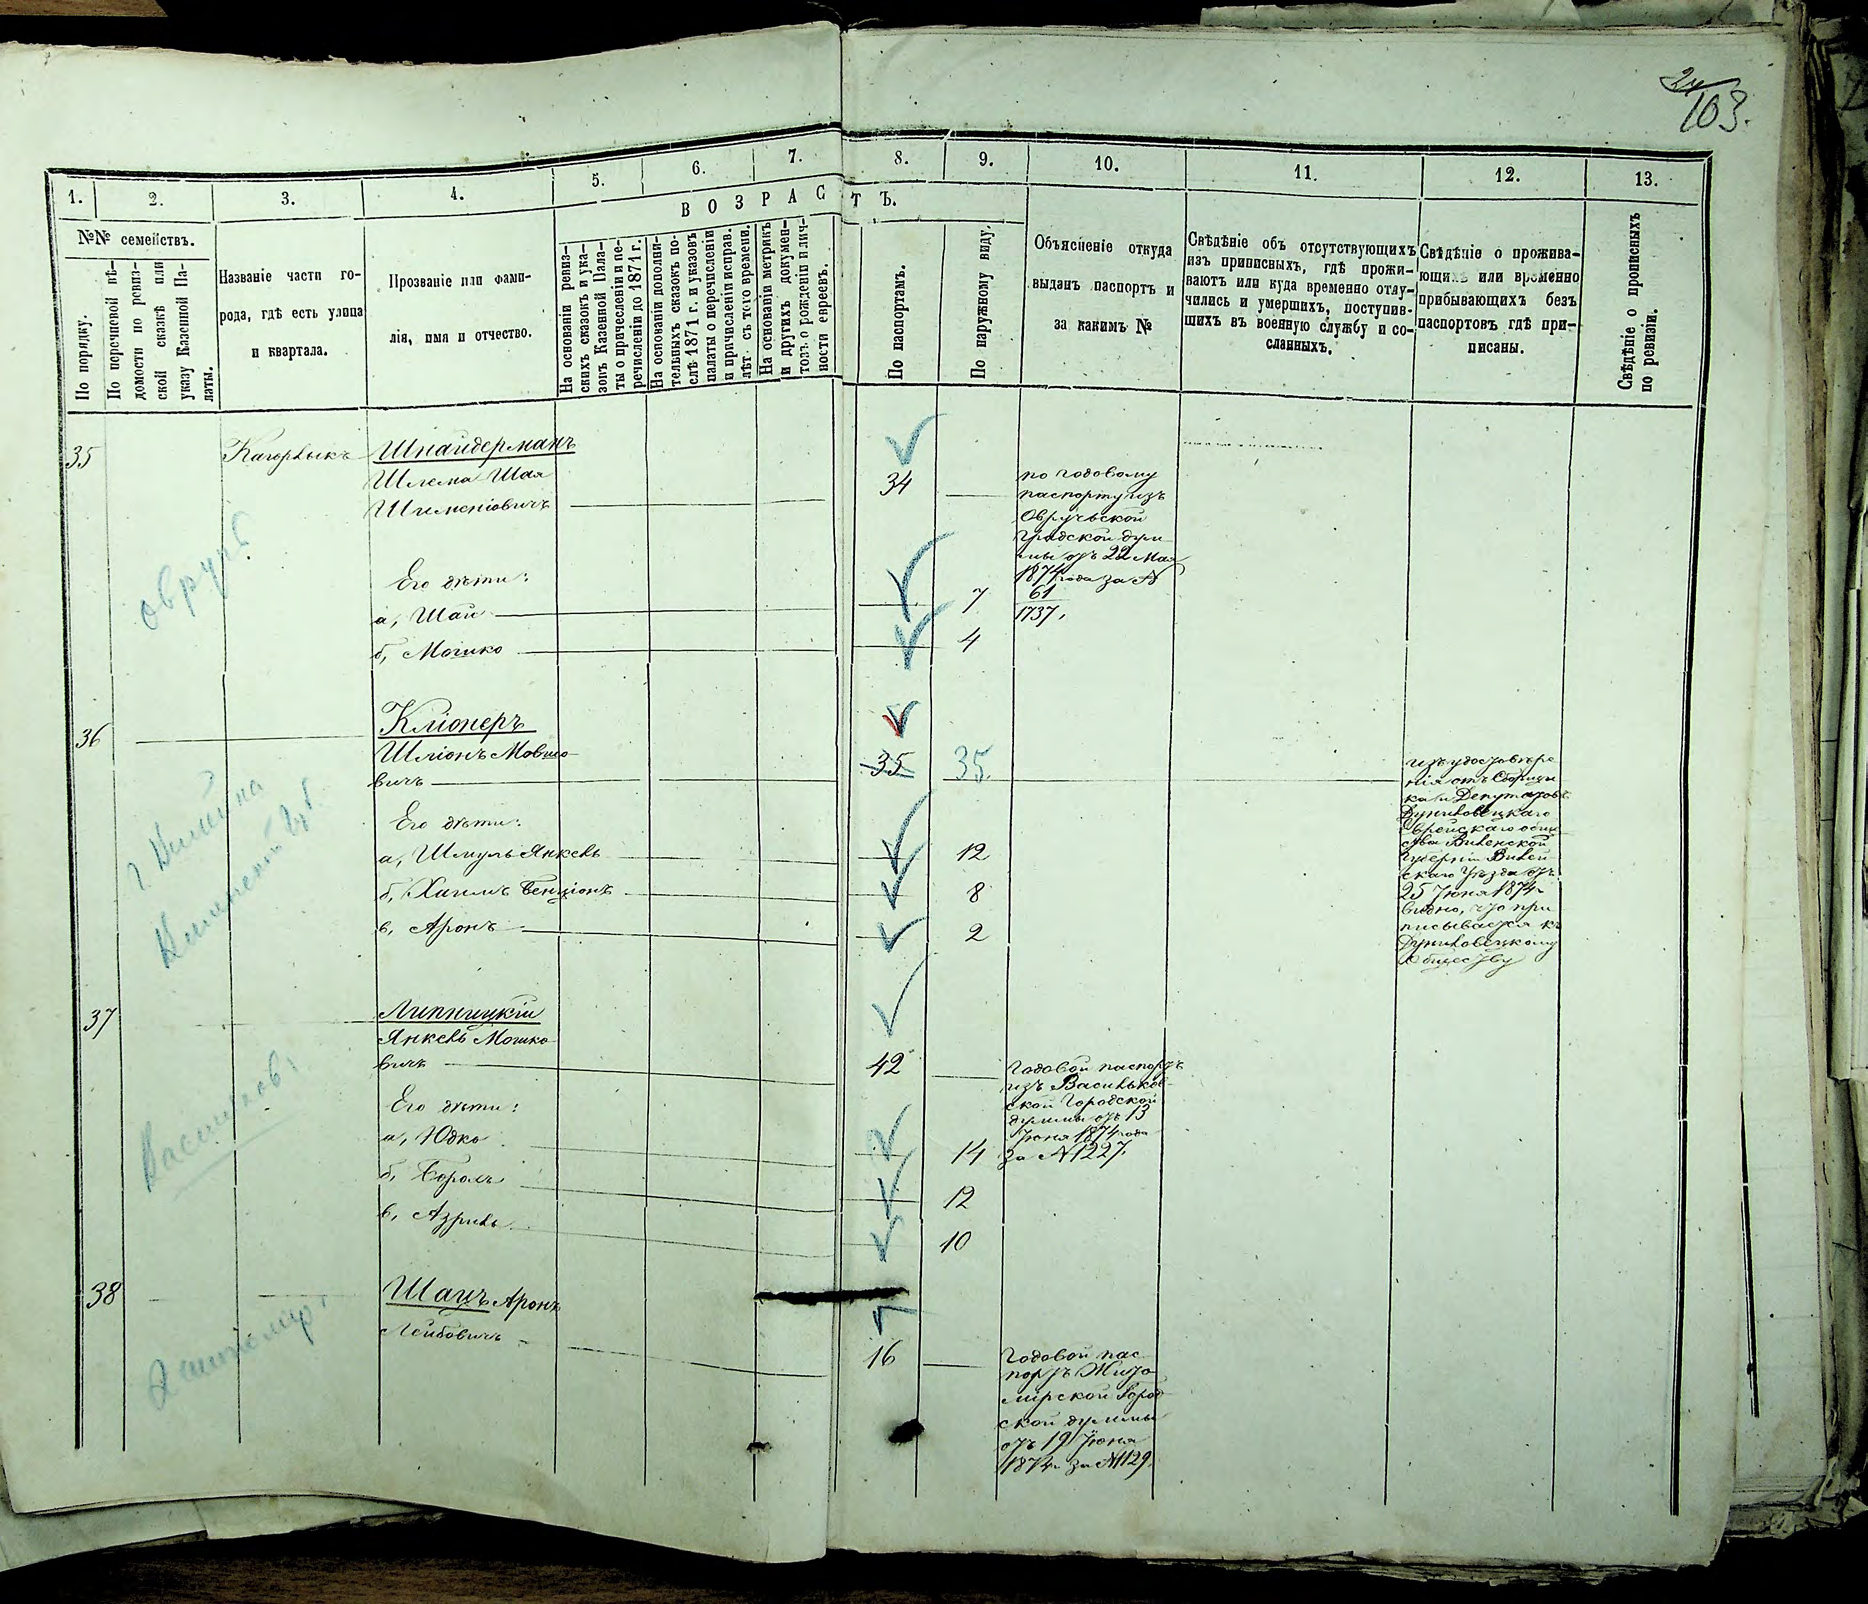 24
103.
1.
2.
3.
4.
5.
6.
7.
8.
9.
10.
11.
12.
13.
ВОЗРАСТЪ.
№№ семействъ.
По порядку.
По перечневой вѣ-
домости по ревиз-
ской сказкѣ или
указу Казенной Па-
латы.
Названіе части го-
рода, гдѣ есть улица
и квартала.
Прозваніе или фами-
лія, имя и отчество.
На основаніи ревиз-
скихъ сказокъ и ука-
зовъ Казенной Пала-
ты о причисленіи и пе-
речисленіи до 1871 г.
На основаніи дополни-
тельныхъ сказокъ по-
слѣ 1871 г. и указовъ
палаты о перечисленіи
и причисленіи исправ.
лѣт. съ того времени.
На основаніи метрикъ
и другихъ докумен-
товъ о рожденіи и лич-
ности евреевъ.
По паспортамъ.
По наружному виду.
Объясненіе откуда
выданъ паспортъ и
за какимъ №
Свѣдѣніе объ отсутствующихъ
изъ приписныхъ, гдѣ прожи-
ваютъ или куда временно отлу-
чились и умершихъ, поступив-
шихъ въ военную службу и со-
сланныхъ.
Свѣдѣніе о прожива-
ющихъ или временно
прибывающихъ безъ
паспортовъ гдѣ при-
писаны.
Свѣдѣніе о прописныхъ
по ревизіи.
35
Кагорлыкъ
Шнайдерманъ
Шлема Шая
Шименіовичъ
34
по годовому
паспорту изъ
Овручьской
Градской дум
мы отъ 22 Мая
1874 года за №
61
1737.
овручъ
Его дѣти:
а, Шаи
7
б, Мошко
4
36
Кліонеръ
Шліонъ Мовшо
вичъ
35
35
изъ удостовѣре
нія отъ Сборщи
ка и Депутатовъ
Дуниловецкаго
Еврейскаго обще
ства Виленской
Губерніи Вилей
скаго Уѣзда отъ
25 Іюня 1874 г.
видно, что при
писывается къ
Дуниловецкому
Обществу
Его дѣти:
а, Шмуль Янкель
12
б, Хаимъ Бенціонъ
8
в, Аронъ
2
37
Липницкій
Янкель Мошко
вичъ
42
Годовой паспортъ
изъ Васильков
ской Городской
думмы отъ 13
Іюня 1874 года
за № 1227.
Васильковъ
Его дѣти:
а, Юдко
14
б, Борохъ
12
в, Азриль
10
38
Шацъ Аронъ
Лейбовичъ
16
Годовой пас
портъ Жито
мірской Город
ской думмы
отъ 19 Іюня
1874 г. за № 1129.